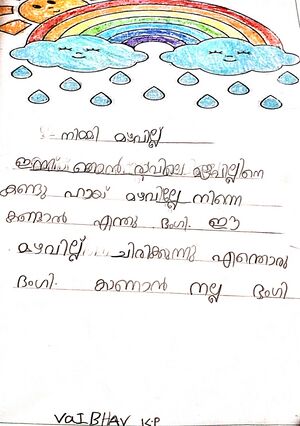 നിമ്മി മഴവില്ല്
ഇന്ന് ഞാൻ രാവിലെ മഴവില്ലിനെ
കണ്ടു ഹായ് മഴവില്ലേ നിന്നെ
കാണാൻ എന്തു ഭംഗി. ഈ
മഴവില്ല് ചിരിക്കുന്നു എന്തൊരു
ഭംഗി. കാണാൻ നല്ല ഭംഗി
VaIBHAV K.P